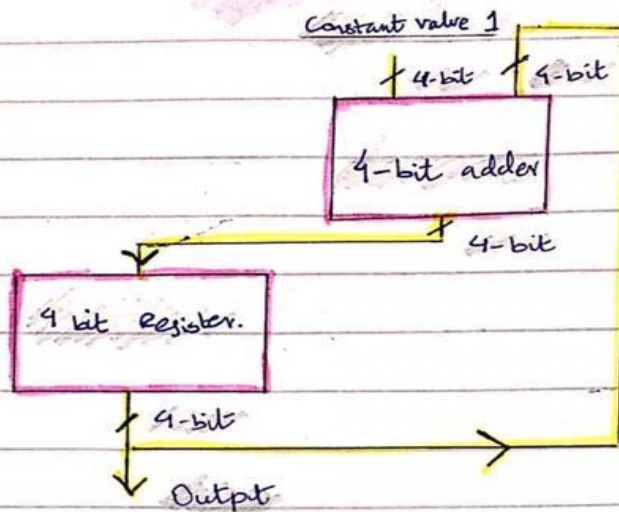 Constant value 1
4-bit 4-bit
4-bit adder
4-bit
4 bit Register.
4-bit
Output